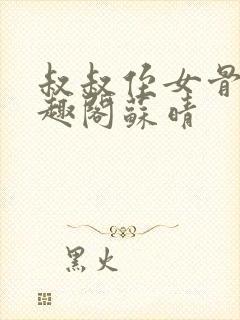 叔叔侄女骨
趣阁蘇晴
黑火